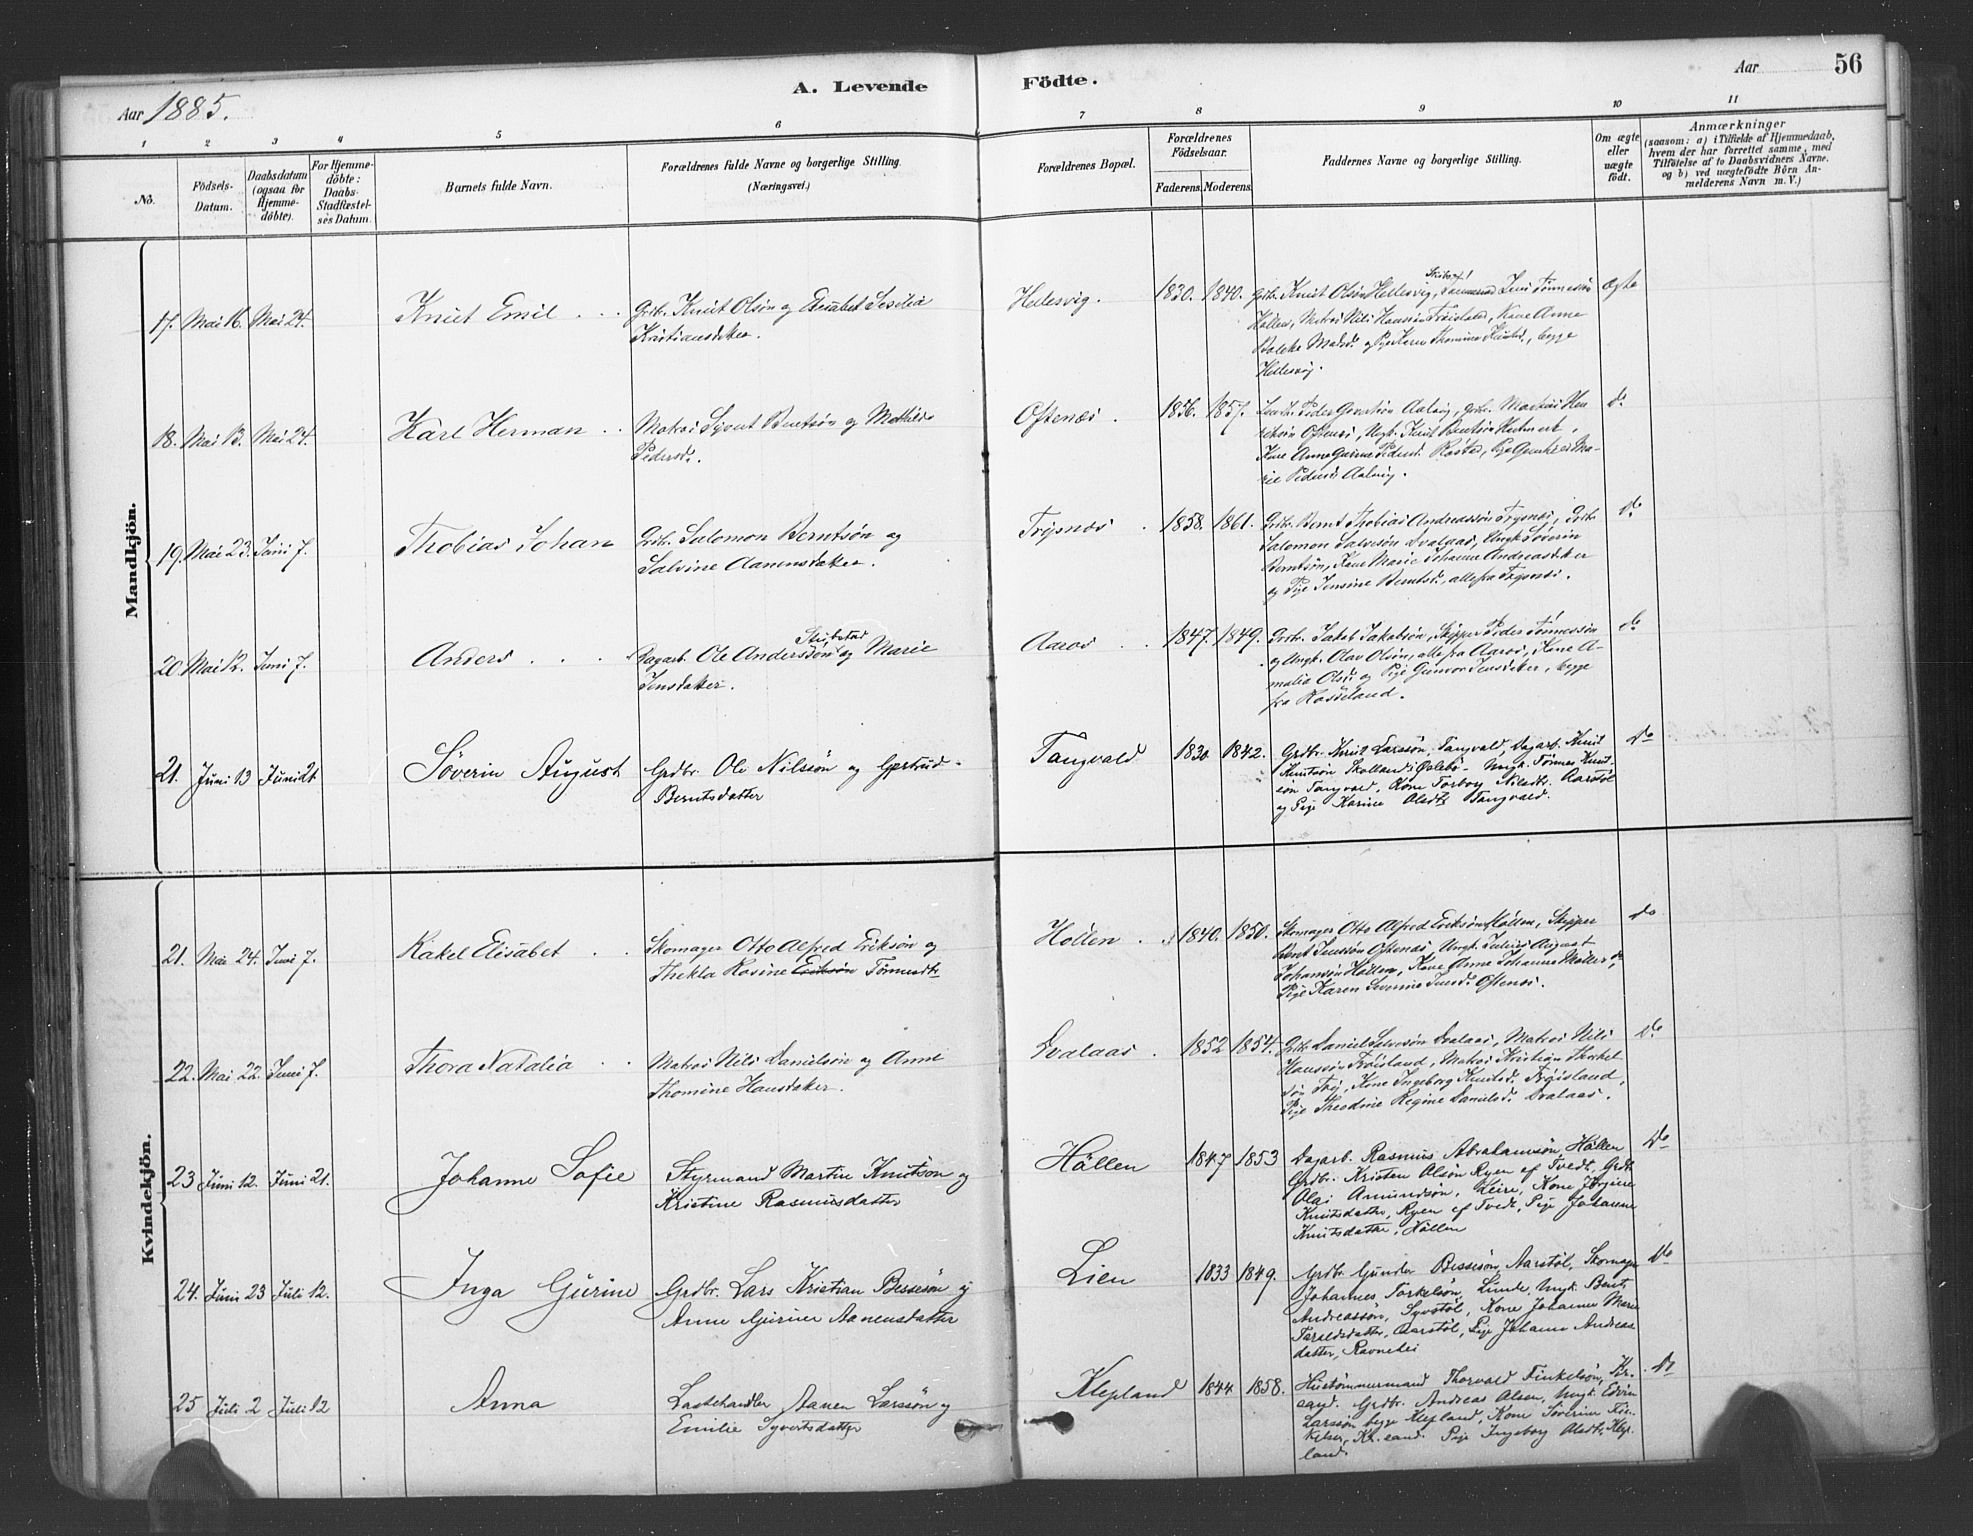 Aar 1885.
A. Levende Födte.
Aar 56
1 2 3 4 5 6 7 8 9 10 11
No.
Födsels-Datum.
Daabsdatum (ogsaa for Hjemme-döbte).
For Hjemme-döbte: Daabs-Stadfæstel-ses Datum.
Barnets fulde Navn.
Forældrenes fulde Navne og borgerlige Stilling.
(Næringsvei.)
Forældrenes Bopæl.
Forældrenes Födselsaar.
Faderens. Moderens.
Faddernes Navne og borgerlige Stilling.
Om ægte eller uægte födt.
Anmærkninger
(saasom: a) i Tilfælde af Hjemmedaab,
hvem der har forrettet samme, med
Tilföielse af to Daabsvidners Navne.
og b) ved uægtefödte Börn An-
melderens Navn m. V.)
Mandkjön.
17. Mai 16. Mai 24. Knut Emil
Grbr. Knut Olsön og Elisabet Sesilia
Kristiansdatter.
Hellesvig. 1830. 1840.
Grbr. Knut Olsön Hellesvig, Jens Tönnesön
Höllen, Matros Nils Hansön Fröisland, Kone Anne
Mads. og Pige Karen Thomine Knutsd., begge
Hellesvig.
Ægte
18. Mai 13. Mai 24. Karl Herman
Matros Syvert Berntsön og Mathilde
Pedersd.
Oftenes. 1856. 1857.
Peder Gevertsön Aalvig, Grbr. Mathias Hen-
riksön Oftenes, Ungk. Knut Berntsön
Kone Anne Gurine Pedersd. Rösta, Pige Gunhild Ma-
rie Pedersd. Aalvig.
do
19. Mai 23. Juni 7. Thobias Johan
Grbr. Salomon Berntsön og
Salvine Aanensdatter.
Trysnes. 1858. 1861.
Grbr. Bernt Thobias Andreassön Trysnes, Grbr.
Salomon Salvesön Dvalaas, Ungk. Söverin
Berntsön, Kone Marie Johanne Andreasdatter
og Pige Jensine Berntsd., alle fra Trysnes.
do
20. Mai 12. Juni 7. Anders
Dagarb. Ole Anderssön Stubstad og Marie
Jensdatter.
Aaros 1847. 1849.
Grbr. Jakob Jakobsön, Skipper Peder Tönnessön
og Ungk. Olav Olsön, alle fra Aaros, Kone A-
malia Olsd. og Pige Gunvor Jensdatter, begge
fra Rosseland.
do
21. Juni 13 Juni 21 Söverin August
Grdbr. Ole Nilssön og Gertrud
Berntsdatter
Tangvald 1830 1842.
Grdbr. Knut Larssön, Tangvald, Dagarb. Knut
Knutsön Skolland i Öslebö. Ungk. Tönnes Knut-
sön Tangvald, Kone Torborg Nilsdt. Aarstöl
og Pige Karine Olsdt. Tangvald.
Do
Kvindekjön.
21. Mai 24. Juni 7. Rakel Elisabet
Skomager Otto Alfred Eriksön og
Thekla Rosine Eriksön Tönnesdt.
Höllen. 1840. 1850.
Skomager Otto Alfred Eriksön Höllen, Skipper
Bernt Jenssön Oftenes, Ungk. Julius August
Johansön Höllen, Kone Anne Johanne Möller do,
Pige Karen Severine Jensd. Oftenes.
do
22. Mai 22. Juni 7. Thora Natalia
Matros Nils Danielsön og Anne
Thomine Hansdatter.
Dvalaas. 1852 1854.
Grbr. Daniel Salvesön Dvalaas, Matros Nils
Hanssön Fröisland, Matros Kristian Thorkel-
sön Try, Kone Ingeborg Knutsd. Fröisland,
Pige Theodine Regine Danielsd. Dvalaas.
do
23 Juni 12. Juni 21. Johanne Sofie
Styrmand Martin Knutsön og
Kristine Rasmusdatter
Höllen 1847 1853
Dagarb. Rasmus Abrahamsön, Höllen
Grdbr. Kristen Olsön Ryen af Tvedt, Grdbr.
Olai Amundsön, Leire, Kone Jörgine
Knutsdatter, Ryen af Tvedt, Pige Johanne
Knutsdatter, Höllen
Do
24. Juni 23 Juli 12. Inga Gurine
Grdbr. Lars Kristian Bessesön og
Anne Gurine Aanensdatter
Lien 1833 1849.
Grdbr. Gunder Bessesön, Aarstöl, Skomager
Johannes Torkelsön, Lunde, Ungk. Bent
Andreassön, Syvstöl, Kone Johanne Marie
Taraldsdatter, Aarstöl, Pige Johanne Andreas-
datter, Ravnehei
Do
25 Juli 2 Juli 12 Anna
Lastehandler Aanen Larssön og
Emilie Syvertsdatter
Klepland 1844 1858.
Hustömmermand Thorvald Finkelsön, Kr.
sand. Grdbr. Andreas Olsen, Ungk. Edvin
Larssön begge Klepland, Kone Söverine Fin-
kelsen, Kr.sand. Pige Ingeborg Olsdt. Klep-
land.
Do